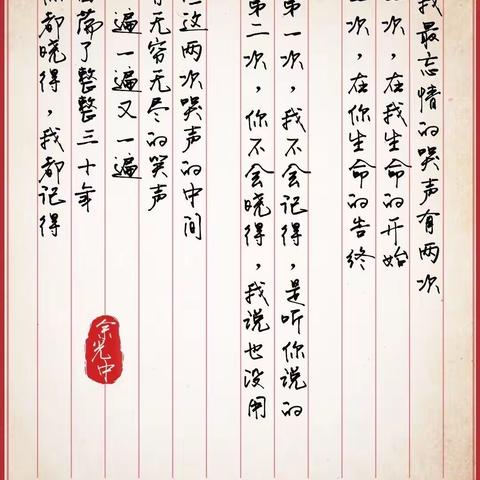 我最忘情的哭声有两次
次,在我生命的开始
次,在你生命的告终
第一次,我不会记得,是听你说的
第二次,你不会晓得,我说也没用
这两次哭声的中间
无穷无尽的笑声
遍一遍又一遍
荡了整整三十年
都晓得,我都记得
余光中